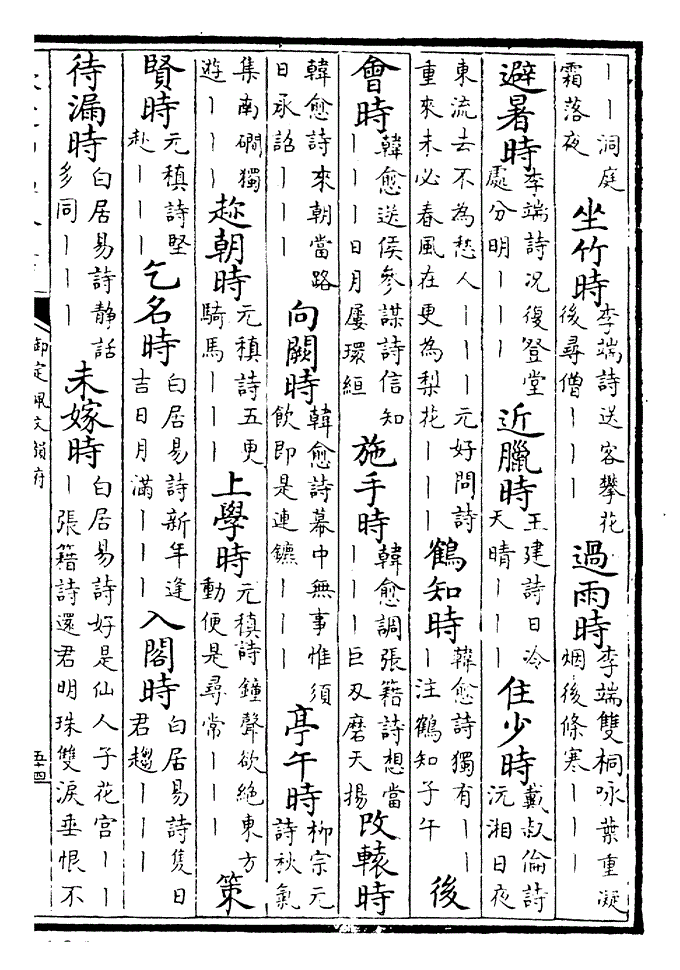 ｜｜洞庭霜落夜 坐竹時 李端詩送客攀花後尋僧｜｜｜ 過雨時 李端雙桐咏葉重凝烟後條寒｜｜｜
避暑時 李端詩况復登堂處分明｜｜｜ 近臘時 王建詩日冷天晴｜｜｜ 住少時 戴叔倫詩沅湘日夜
東流去不為愁人｜｜｜元好問詩重來未必春風在更為梨花｜｜｜ 鶴知時 韓愈詩獨有｜｜｜注鶴知子午 後
會時 韓愈送侯參謀詩信知｜｜｜日月屢環絙 施手時 韓愈調張籍詩想當｜｜｜巨刃磨天揚 改轅時
韓愈詩來朝當路日承詔｜｜｜ 向闕時 韓愈詩幕中無事惟須飲即是連鑣｜｜｜ 亭午時 柳宗元詩秋氣
集南磵獨遊｜｜｜ 趂朝時 元稹詩五更騎馬｜｜｜ 上學時 元稹詩鐘聲欲絶東方動便是尋常｜｜｜ 策
賢時 元稹詩堅赴｜｜｜ 乞名時 白居易詩新年逢吉日月滿｜｜｜ 入閣時 白居易詩隻日君趨｜｜｜
待漏時 白居易詩静話多同｜｜｜ 未嫁時 白居易詩好是仙人子花宮｜｜｜張籍詩還君明珠雙淚垂恨不
御定佩文韻府
五四